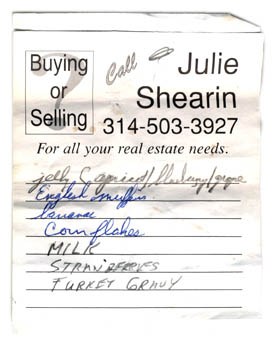 Buying or Selling
?
Call Julie Shearin
314-503-3927
For all your real estate needs.
jelly
English muffins
Bananas
Cornflakes
MILK
STRAWBERRIES
TURKEY GRAVY